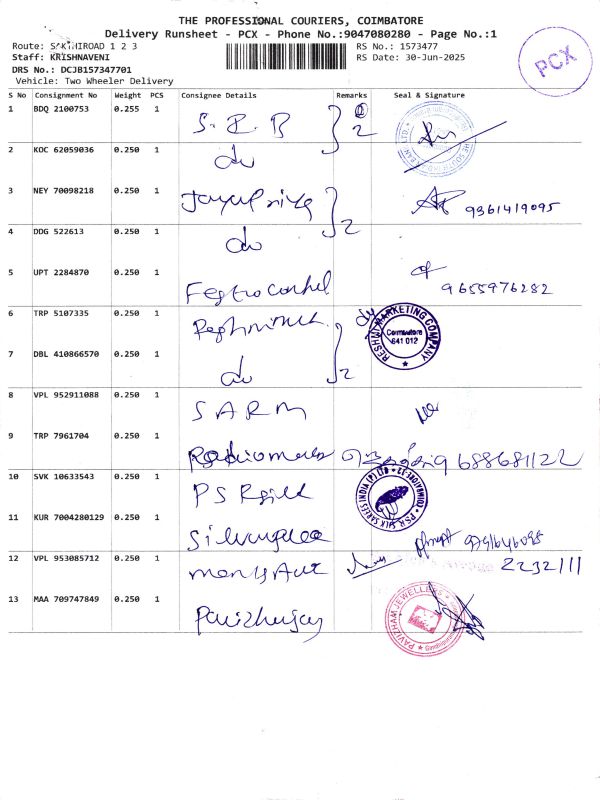 THE PROFESSIONAL COURIERS, COIMBATORE
Delivery Runsheet - PCX - Phone No.:9047080280 - Page No.:1
Route: SAKTHIROAD 1 2 3
RS No.: 1573477
Staff: KRISHNAVENI
RS Date: 30-Jun-2025
DRS No.: DCJB157347701
Vehicle: Two Wheeler Delivery
PCX
S No Consignment No Weight PCS Consignee Details Remarks Seal & Signature
1 BDQ 2100753 0.255 1 S. I. B 2
2 KOC 62059036 0.250 1 do
3 NEY 70098218 0.250 1 Jayapriya 2 9361419095
4 DDG 522613 0.250 1 do
5 UPT 2284870 0.250 1 9655976282
6 TRP 5107335 0.250 1
RESHMI MARKETING COMPANY
Coimbatore
641 012
7 DBL 410866570 0.250 1 do 2
8 VPL 952911088 0.250 1 SARM
9 TRP 7961704 0.250 1 9688681122
10 SVK 10633543 0.250 1 PSR Silk
PSR SILK SAREES INDIA (P) LTD COIMBATORE-12
11 KUR 7004280129 0.250 1
12 VPL 953085712 0.250 1 2232111
13 MAA 709747849 0.250 1 Pavizhujay
PAVIZHAM JEWELLERS